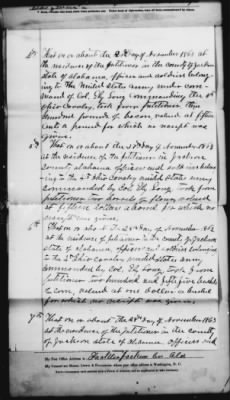 4th That on or about the 28th day of November 1863 at
the residence of the petitioner in the county of Jackson
State of Alabama, officers and soldiers belong-
ing to the United States army under com-
mand of Col. Eli Long Commanding the 4th
Ohio Cavalry, took from petitioner
hundred pounds of bacon, valued at fifteen
cents a pound for which no receipt was
given.
5th That on or about the 28th day of November 1863
at the residence of the petitioner in Jackson
County Alabama officers and soldiers belong-
ing to the 4th Ohio Cavalry United States army
commanded by Col. Eli Long, took from
petitioner two barrels of flour, valued
at dollars a barrel for which no
receipt was given.
6th That on or about the 28th day of November 1863
at the residence of petitioner in the County of Jackson
State of Alabama officers and soldiers belonging
to the 4th Ohio Cavalry United States army
commanded by Col. Eli Long, took from
petitioner two hundred and fifty five bushels
of corn, valued at one dollar a bushel
for which no receipt was given.
7th That on or about the 28th day of November 1863
at the residence of the petitioner in the county
of Jackson State of Alabama officers and
My Post Office Address is Jackson Co. Ala